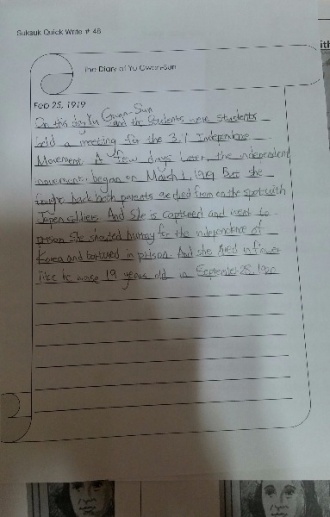 Sukauk Quick Write # 48
The Diary of Yu Gwan-Sun
Feb 25, 1919
On this day Yu Gwan-Sun and the students were students
hold a meeting for the 3.1 Independence
Movement. A few days later the independent
movement began on March 1, 1919 But she
back both parents died from the spot with
Japan soldiers. And she is captured and went to
prison She shouted hurray for the independence of
Korea and in prison. And she died in
like to 19 years old in September 28,